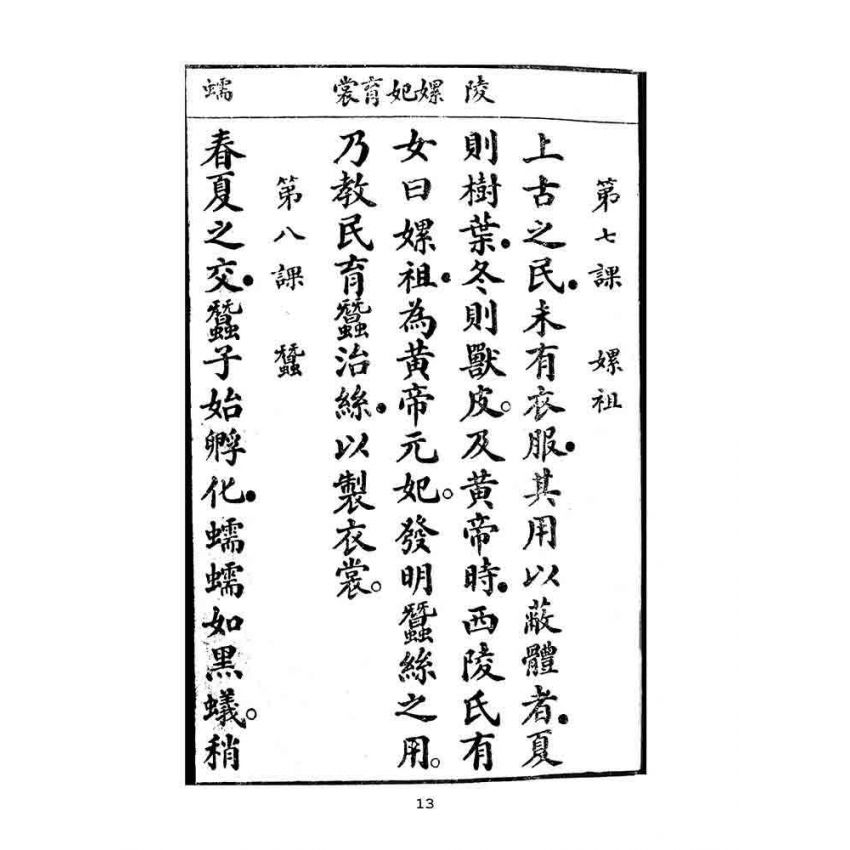 陵
嫘妃
育裳
蠕
第七課 嫘祖
上古之民●未有衣服●其用以蔽體者●夏
則樹葉●冬則獸皮○及黃帝時●西陵氏有
女曰嫘祖●為黃帝元妃○發明蠶絲之用○
乃教民育蠶治絲●以製衣裳○
第八課 蠶
春夏之交●蠶子始孵化●蠕蠕如黑蟻○稍
13